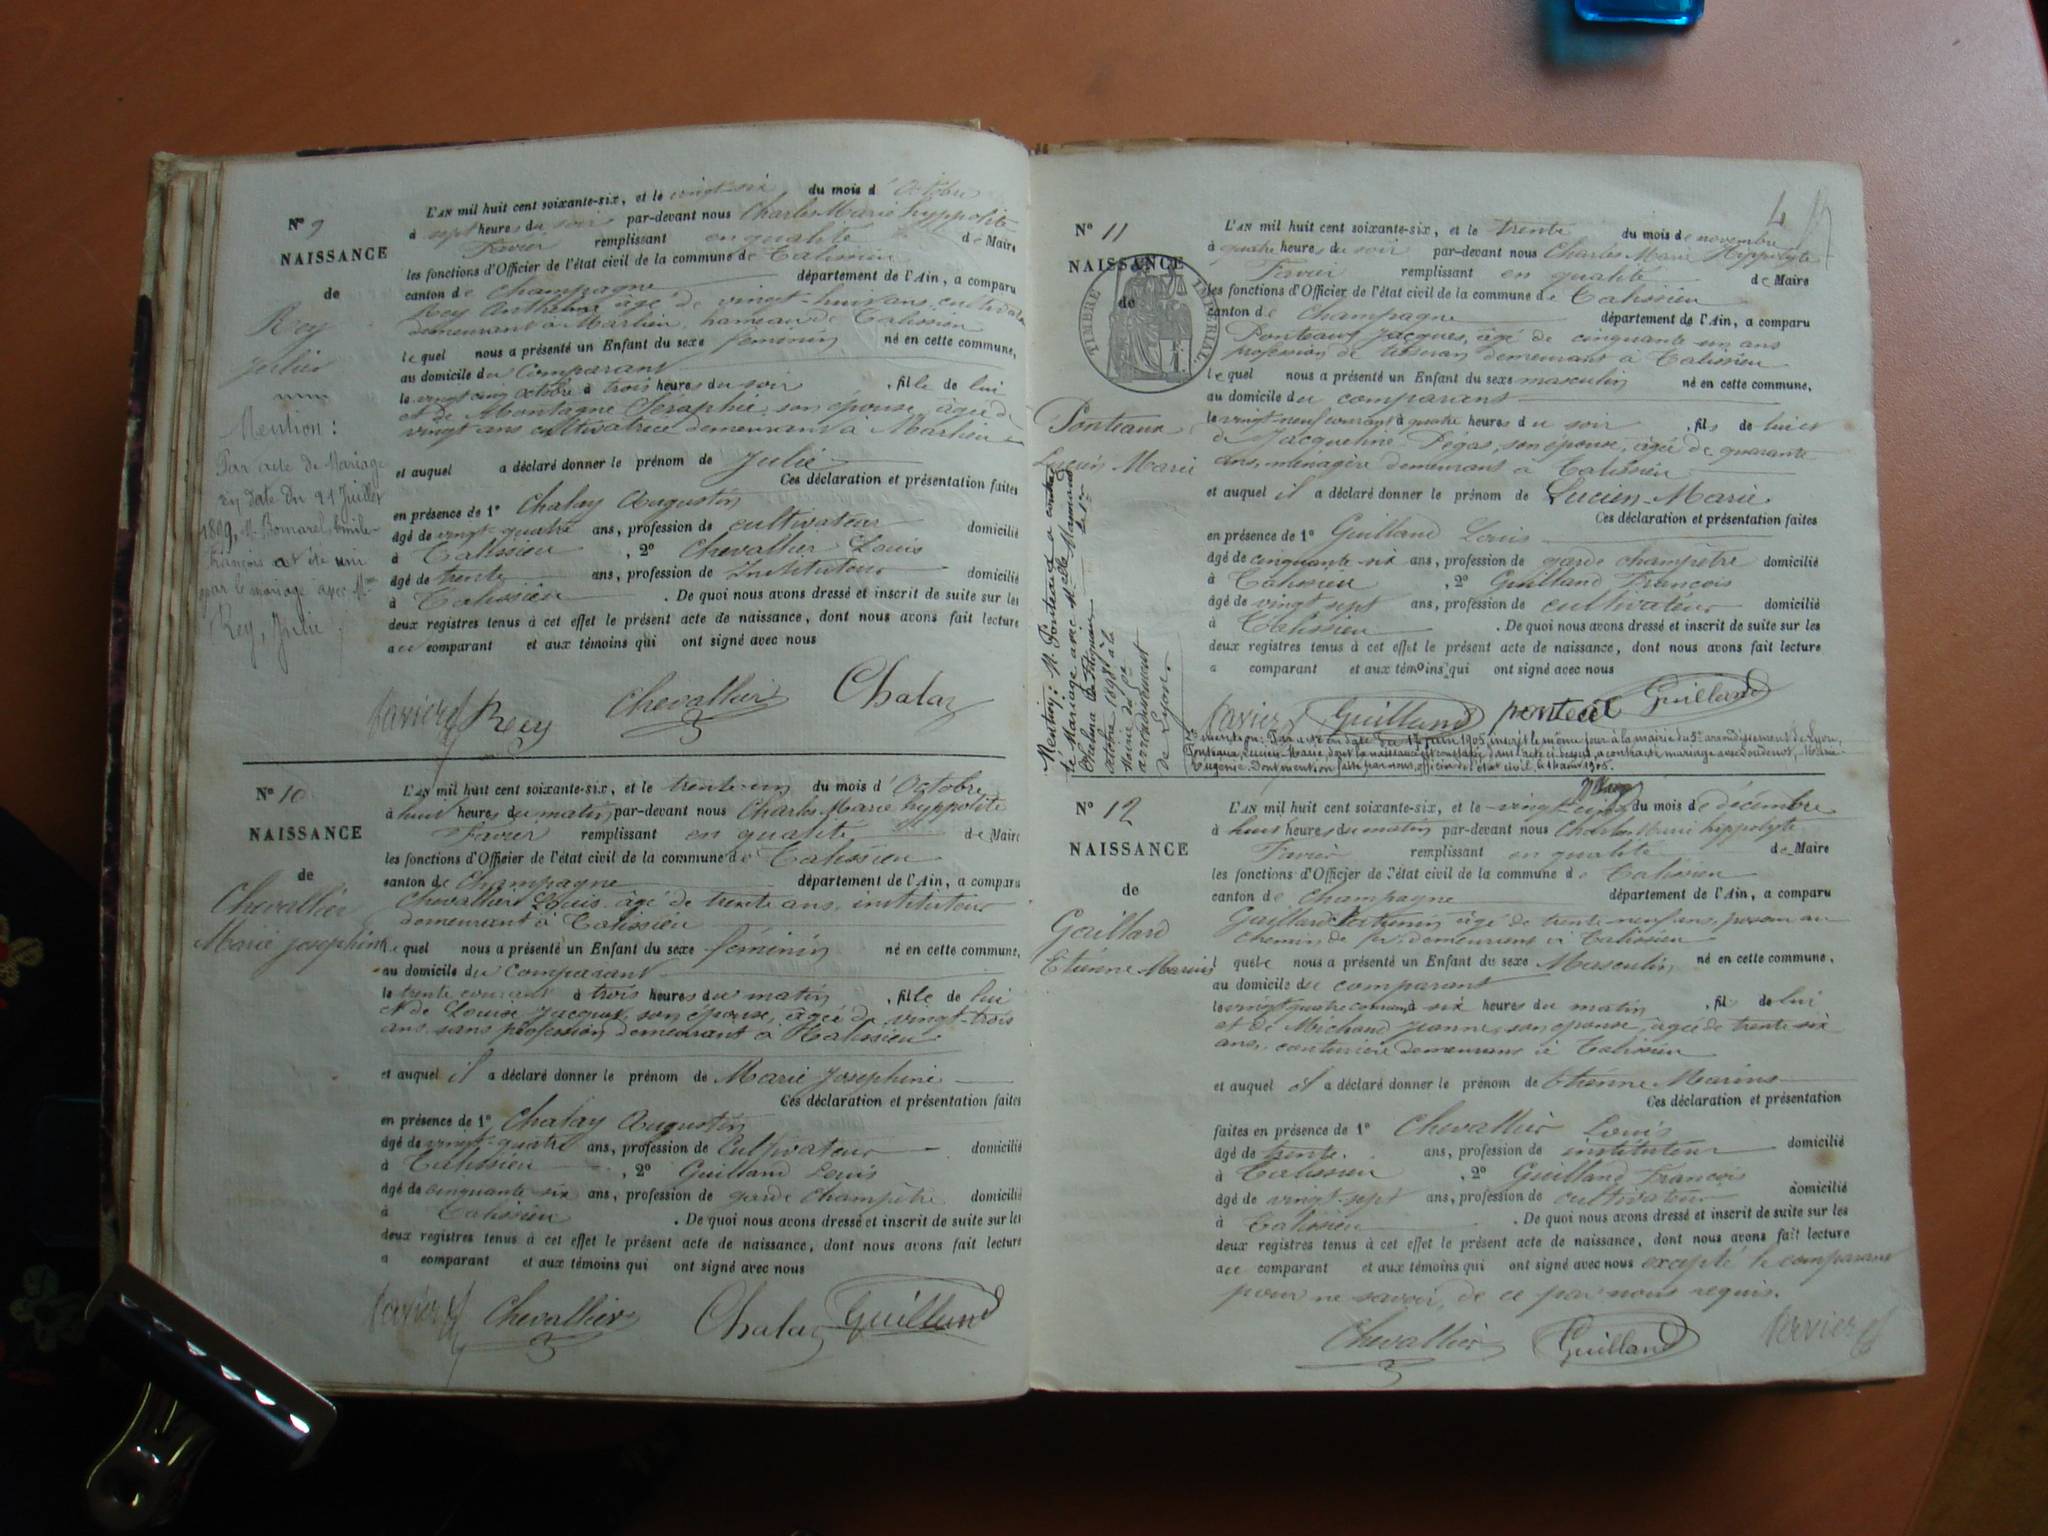 N° 9
NAISSANCE
de
Rey
Julie
Mention :
Par acte de Mariage
en date du 21 Juillet
M. Bomarel, Emile
François a été uni
par le mariage avec Mlle
Rey, Julie
L'AN mil huit cent soixante-six, et le vingt-six du mois d'Octobre
à sept heures du soir par-devant nous Charles Marie hyppolite
Favier remplissant en qualité de Maire
les fonctions d'Officier de l'état civil de la commune de Talissieu
canton de Champagne département de l'Ain, a comparu
Rey Anthelme âgé de vingt-huit ans, cultivateur
demeurant à Marlieu, hameau de Talissieu
lequel nous a présenté un Enfant du sexe féminin né en cette commune,
au domicile du Comparant
le vingt cinq octobre à trois heures du soir , fille de lui
et de Montagne Séraphie, son épouse, âgée de
vingt ans cultivatrice demeurant à Marlieu
et auquel a déclaré donner le prénom de Julie
Ces déclaration et présentation faites
en présence de 1° Chalay Augustin
âgé de vingt quatre ans, profession de cultivateur domicilié
à Talissieu , 2° Chevallier Louis
âgé de trente ans, profession de Instituteur domicilié
à Talissieu . De quoi nous avons dressé et inscrit de suite sur les
deux registres tenus à cet effet le présent acte de naissance, dont nous avons fait lecture
au comparant et aux témoins qui ont signé avec nous
Favier Rey Chevallier Chalay
N° 10
NAISSANCE
de
Chevallier
Marie Josephine
L'AN mil huit cent soixante-six, et le trente-un du mois d'Octobre
à huit heures du matin par-devant nous Charles Marie hyppolite
Favier remplissant en qualité de Maire
les fonctions d'Officier de l'état civil de la commune de Talissieu
canton de Champagne département de l'Ain, a comparu
Chevallier Louis âgé de trente ans, instituteur
demeurant à Talissieu
lequel nous a présenté un Enfant du sexe féminin né en cette commune,
au domicile du Comparant
le trente courant à trois heures du matin , fille de lui
et de Louise Jacquet son épouse, âgée de vingt-trois
ans, sans profession demeurant à Talissieu
et auquel il a déclaré donner le prénom de Marie Josephine
Ces déclaration et présentation faites
en présence de 1° Chalay Augustin
âgé de vingt-quatre ans, profession de Cultivateur domicilié
à Talissieu , 2° Guilland Louis
âgé de cinquante six ans, profession de garde champêtre domicilié
à Talissieu . De quoi nous avons dressé et inscrit de suite sur les
deux registres tenus à cet effet le présent acte de naissance, dont nous avons fait lecture
a comparant et aux témoins qui ont signé avec nous
Favier Chevallier Chalay Guilland
4
N° 11
NAISSANCE
de
TIMBRE IMPÉRIAL
Ponteaux
Lucien Marie
Mention : M. Ponteaux a contracté
le Mariage avec Melle
octobre 1898 à la
Mairie du
arrondissement
de Lyon.
L'AN mil huit cent soixante-six, et le trente du mois de novembre
à quatre heures du soir par-devant nous Charles Marie Hyppolyte
Favier remplissant en qualité de Maire
les fonctions d'Officier de l'état civil de la commune de Talissieu
canton de Champagne département de l'Ain, a comparu
Ponteaux Jacques, âgé de cinquante un ans
profession de tisseran demeurant à Talissieu
lequel nous a présenté un Enfant du sexe masculin né en cette commune,
au domicile du comparant
le vingt-neuf courant à quatre heures du soir , fils de lui et
de Jacqueline Pégaz, son épouse, âgée de quarante
ans, ménagère demeurant à Talissieu
et auquel il a déclaré donner le prénom de Lucien-Marie
Ces déclaration et présentation faites
en présence de 1° Guilland Louis
âgé de cinquante-six ans, profession de garde champêtre domicilié
à Talissieu , 2° Guilland François
âgé de vingt sept ans, profession de cultivateur domicilié
à Talissieu . De quoi nous avons dressé et inscrit de suite sur les
deux registres tenus à cet effet le présent acte de naissance, dont nous avons fait lecture
a comparant et aux témoins qui ont signé avec nous
Favier Guilland Guilland
mention : Par acte en date du 17 juin 1905, inscrit le même jour à la mairie du 5e arrondissement de Lyon,
Ponteaux, Lucien-Marie, dont la naissance est constatée dans l'acte ci-dessus, a contracté mariage avec
Eugénie. Dont mention faite par nous, officier de l'état civil, le 1905.
N° 12
NAISSANCE
de
Gaillard
Etienne Marius
L'AN mil huit cent soixante-six, et le vingt-cinq du mois de décembre
à huit heures du matin par-devant nous Charles Marie hippolyte
Favier remplissant en qualité de Maire
les fonctions d'Officier de l'état civil de la commune de Talissieu
canton de Champagne département de l'Ain, a comparu
Gaillard âgé de trente-neuf ans, poseur au
chemin de fer demeurant à Talissieu
lequel nous a présenté un Enfant du sexe Masculin né en cette commune,
au domicile du comparant
le vingt quatre courant à six heures du matin , fils de lui
et de Michaud Jeanne, son épouse, âgée de trente six
ans, couturière demeurant à Talissieu
et auquel il a déclaré donner le prénom de Etienne Marius
Ces déclaration et présentation
faites en présence de 1° Chevallier Louis
âgé de trente ans, profession de instituteur domicilié
à Talissieu , 2° Guilland François
âgé de vingt-sept ans, profession de cultivateur domicilié
à Talissieu . De quoi nous avons dressé et inscrit de suite sur les
deux registres tenus à cet effet le présent acte de naissance, dont nous avons fait lecture
au comparant et aux témoins qui ont signé avec nous excepté le comparant
pour ne savoir, de ce par nous requis.
Chevallier Guilland Favier